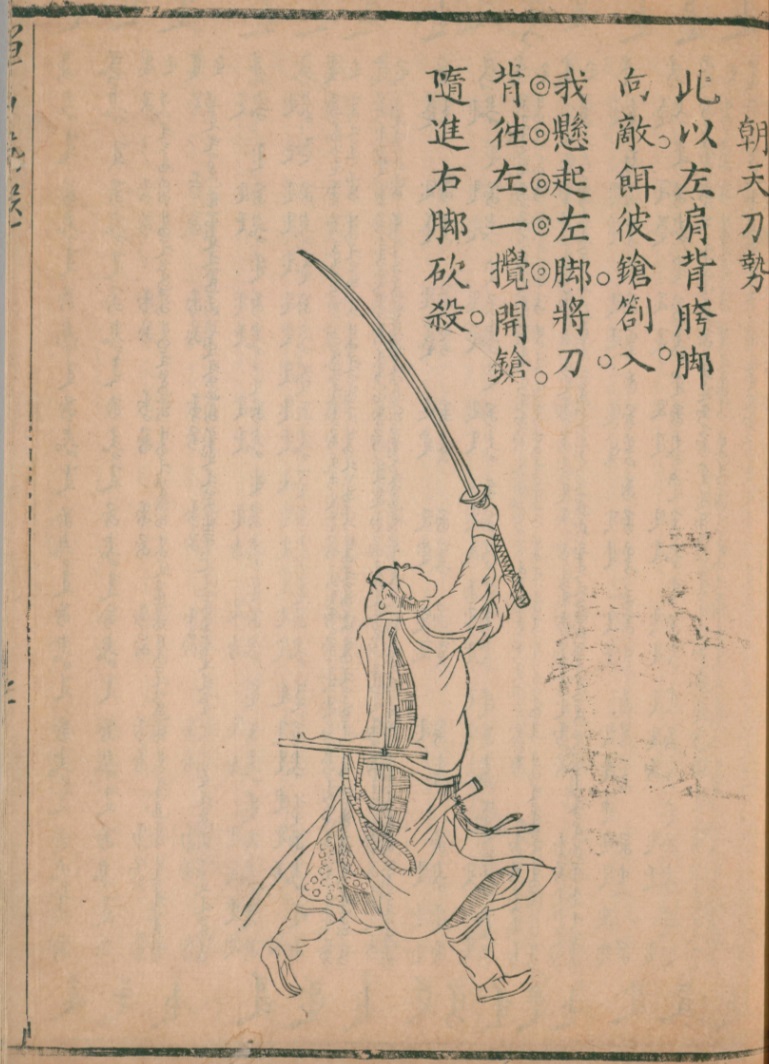 朝天刀勢
此以左肩背胯脚
向敵。餌彼鎗劄入。
我懸起左脚。將刀
背徃左一攪開鎗。
隨進右脚砍殺。